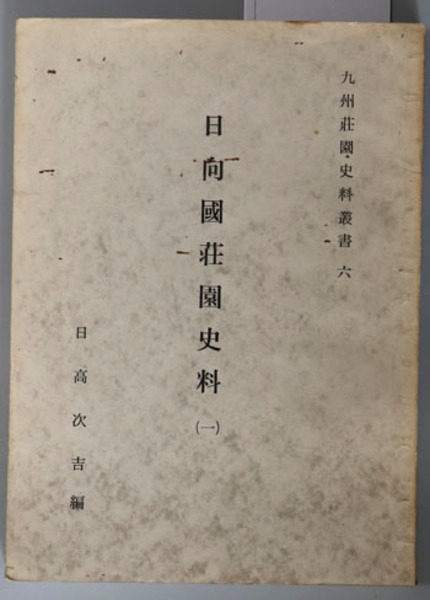 九州莊園史料叢書 六
日向國莊園史料 (一)
日高次吉編